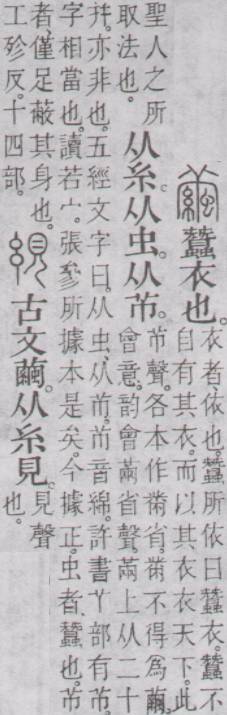 繭蠶衣也。
衣者依也。蠶所依曰蠶衣。蠶不
自有其衣。而以其衣衣天下。此
聖人之所
取法也。
从糸。从虫。从芇。
芇聲。各本作黹省。黹不得為繭
會意。韵會䒼省聲。䒼上从二十
幷。亦非也。五經文字曰。从虫、从芇。芇音綿。許書丫部有芇。
字相當也。讀若宀。張參所據本是矣。今據正。虫者、蠶也。芇
者、僅足蔽其身也。
工殄反。十四部。
絸古文繭。从糸見。
見聲
也。